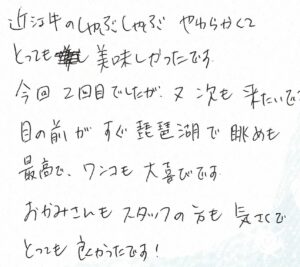 近江牛のしゃぶしゃぶ やわらかくて
とっても 美味しかったです
今回 2回目でしたが、又 次も 来たいで
目の前が すぐ 琵琶湖で 眺めも
最高で、ワンコも 大喜びです
おかみさんも スタッフの方も 気さくで
とっても 良かったです!